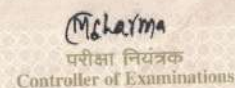 MSharma
परीक्षा नियंत्रक
Controller of Examinations